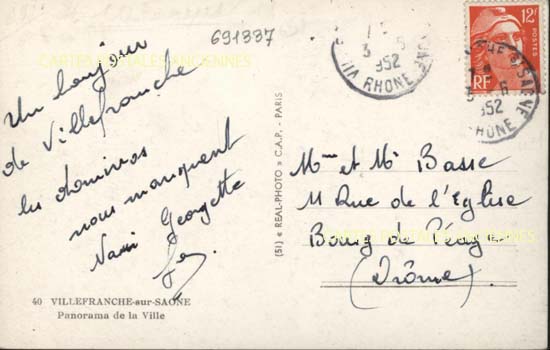 631337
CARTES POSTALES ANCIENNES
Un bonjour
de Villefranche
les dominos
nous manquent
Georgette
40 VILLEFRANCHE-sur-SAONE
Panorama de la Ville
(51) « REAL-PHOTO » C.A.P. - PARIS
3 6
1952
RHONE
12F
POSTES
RF
SAONE
6
1952
RHONE
Mme et Mr Basse
11 Rue de l'Eglise
Bourg de Péage
CARTES POSTALES ANCIENNES
(Drôme)